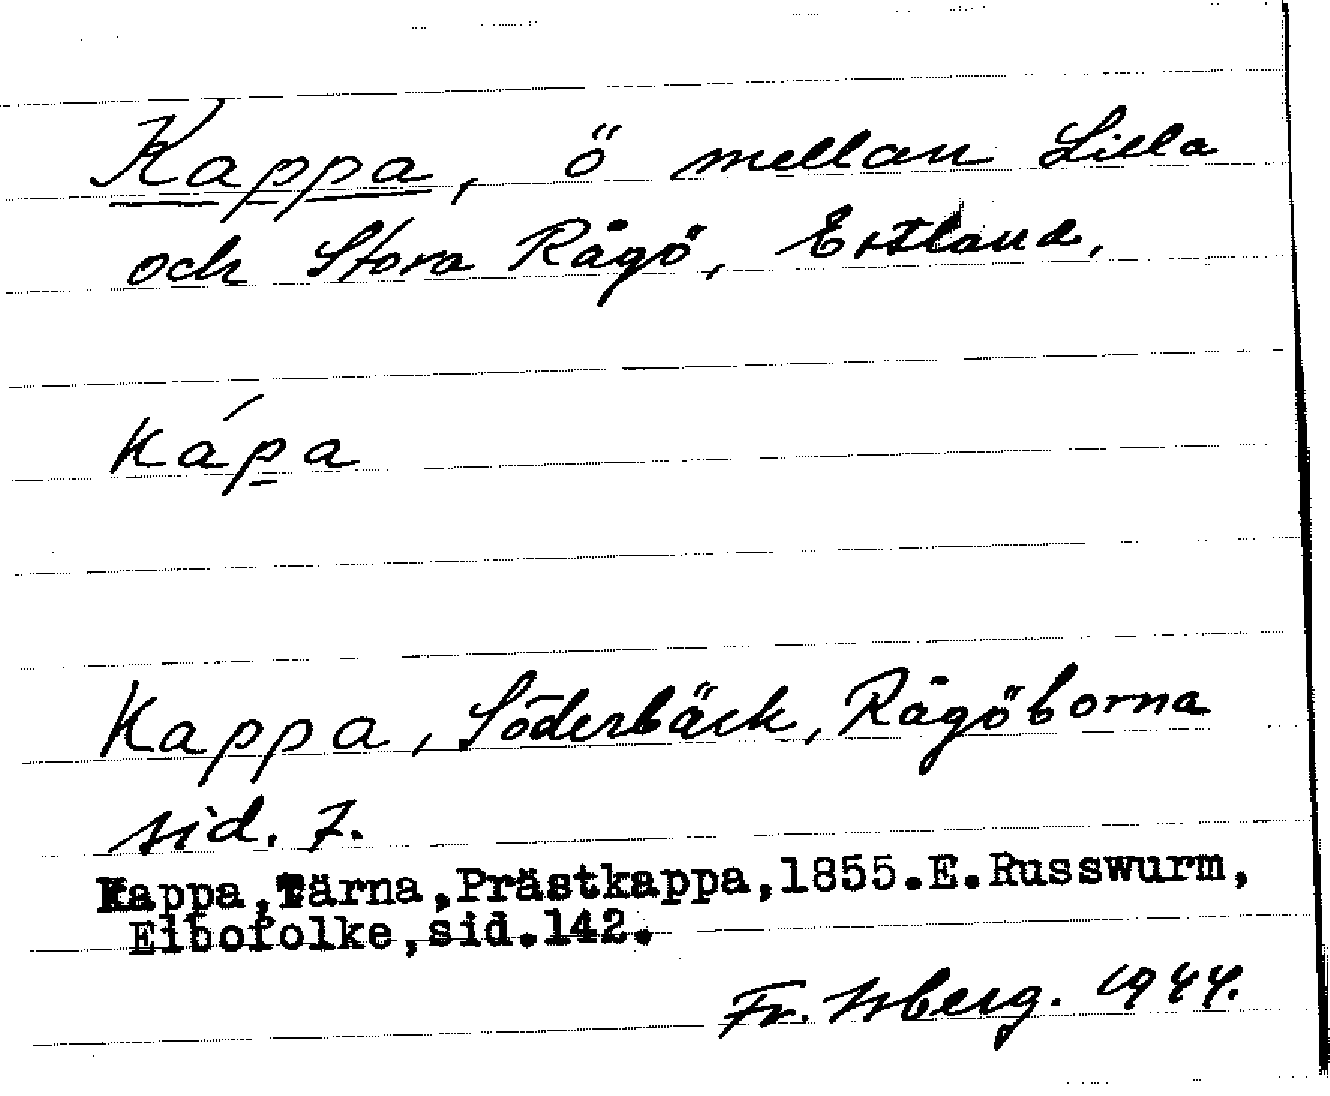 Kappa, ö mellan Lilla
och Stora Rågö, Estland.
kápa
Kappa, Söderbäck, Rågöborna
sid. 7.
Kappa,Tärna,Prästkappa,1855.E.Russwurm,
Eibofolke,sid.142.
Fr. Isberg. 1944.